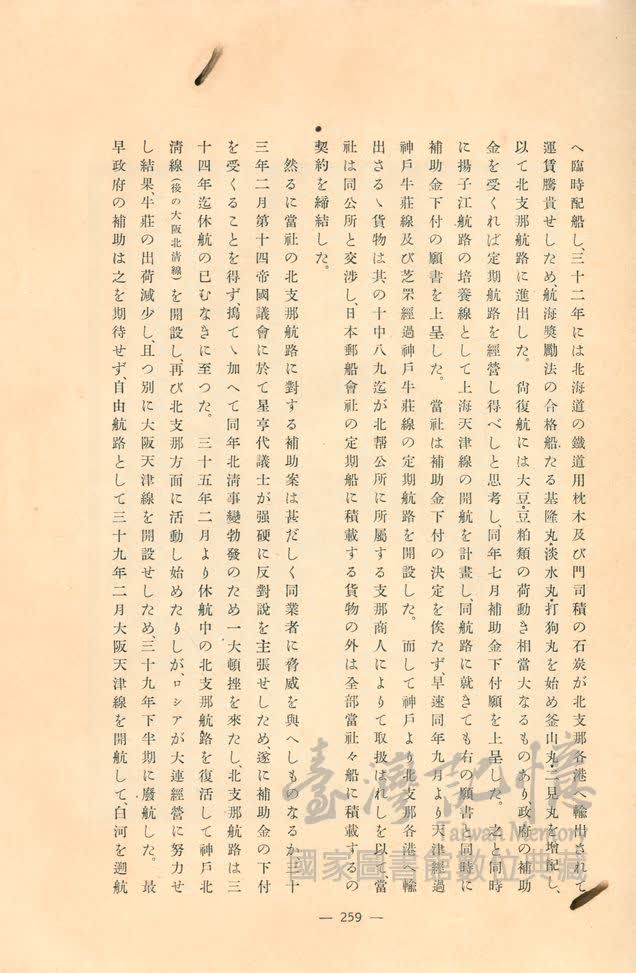 へ臨時配船し、三十二年には北海道の鐵道用枕木及び門司積の石炭が北支那各港へ輸出されて
運賃騰貴せしため、航海奬勵法の合格船たる基隆丸・淡水丸・打狗丸を始め釜山丸・二見丸を增配し、
以て北支那航路に進出した。尙復航には大豆・豆粕類の荷動き相當大なるものあり、政府の補助
金を受くれば定期航路を經營し得べしと思考し、同年七月補助金下付願を上呈した。之と同時
に揚子江航路の培養線として上海天津線の開航を計畫し、同航路に就きても右の願書と同時に
補助金下付の願書を上呈した。當社は補助金下付の決定を俟たず、早速同年九月より天津經過
神戶牛莊線及び芝罘經過神戶牛莊線の定期航路を開設した。而して神戶より北支那各港へ輸
出さるゝ貨物は其の十中八九迄が北帮公所に所屬する支那商人によりて取扱はれしを以て、當
社は同公所と交涉し、日本郵船會社の定期船に積載する貨物の外は全部當社々船に積載するの
契約を締結した。
然るに當社の北支那航路に對する補助案は甚だしく同業者に脅威を與へしものなるか、三十
三年二月第十四帝國議會に於て星亨代議士が强硬に反對說を主張せしため、遂に補助金の下付
を受くることを得ず、搗てゝ加へて同年北淸事變勃發のため一大頓挫を來たし、北支那航路は三
十四年迄休航の已むなきに至つた。三十五年二月より休航中の北支那航路を復活して神戶北
淸線(後の大阪北淸線)を開設し、再び北支那方面に活動し始めたりしが、ロシアが大連經營に努力せ
し結果、牛莊の出荷減少し、且つ別に大阪天津線を開設せしため、三十九年下半期に廢航した。最
早政府の補助は之を期待せず、自由航路として三十九年二月大阪天津線を開航して、白河を遡航
— 259 —
臺灣記憶
Taiwan Memory
國家圖書館數位典藏